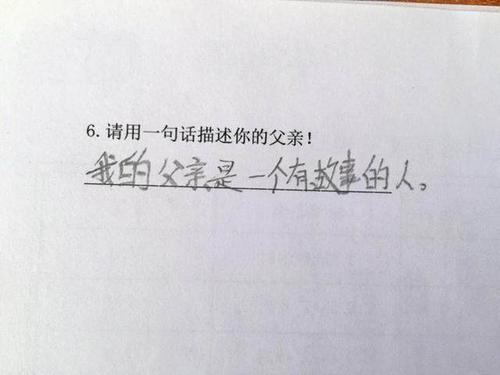 6. 请用一句话描述你的父亲！
我的父亲是一个有故事的人。